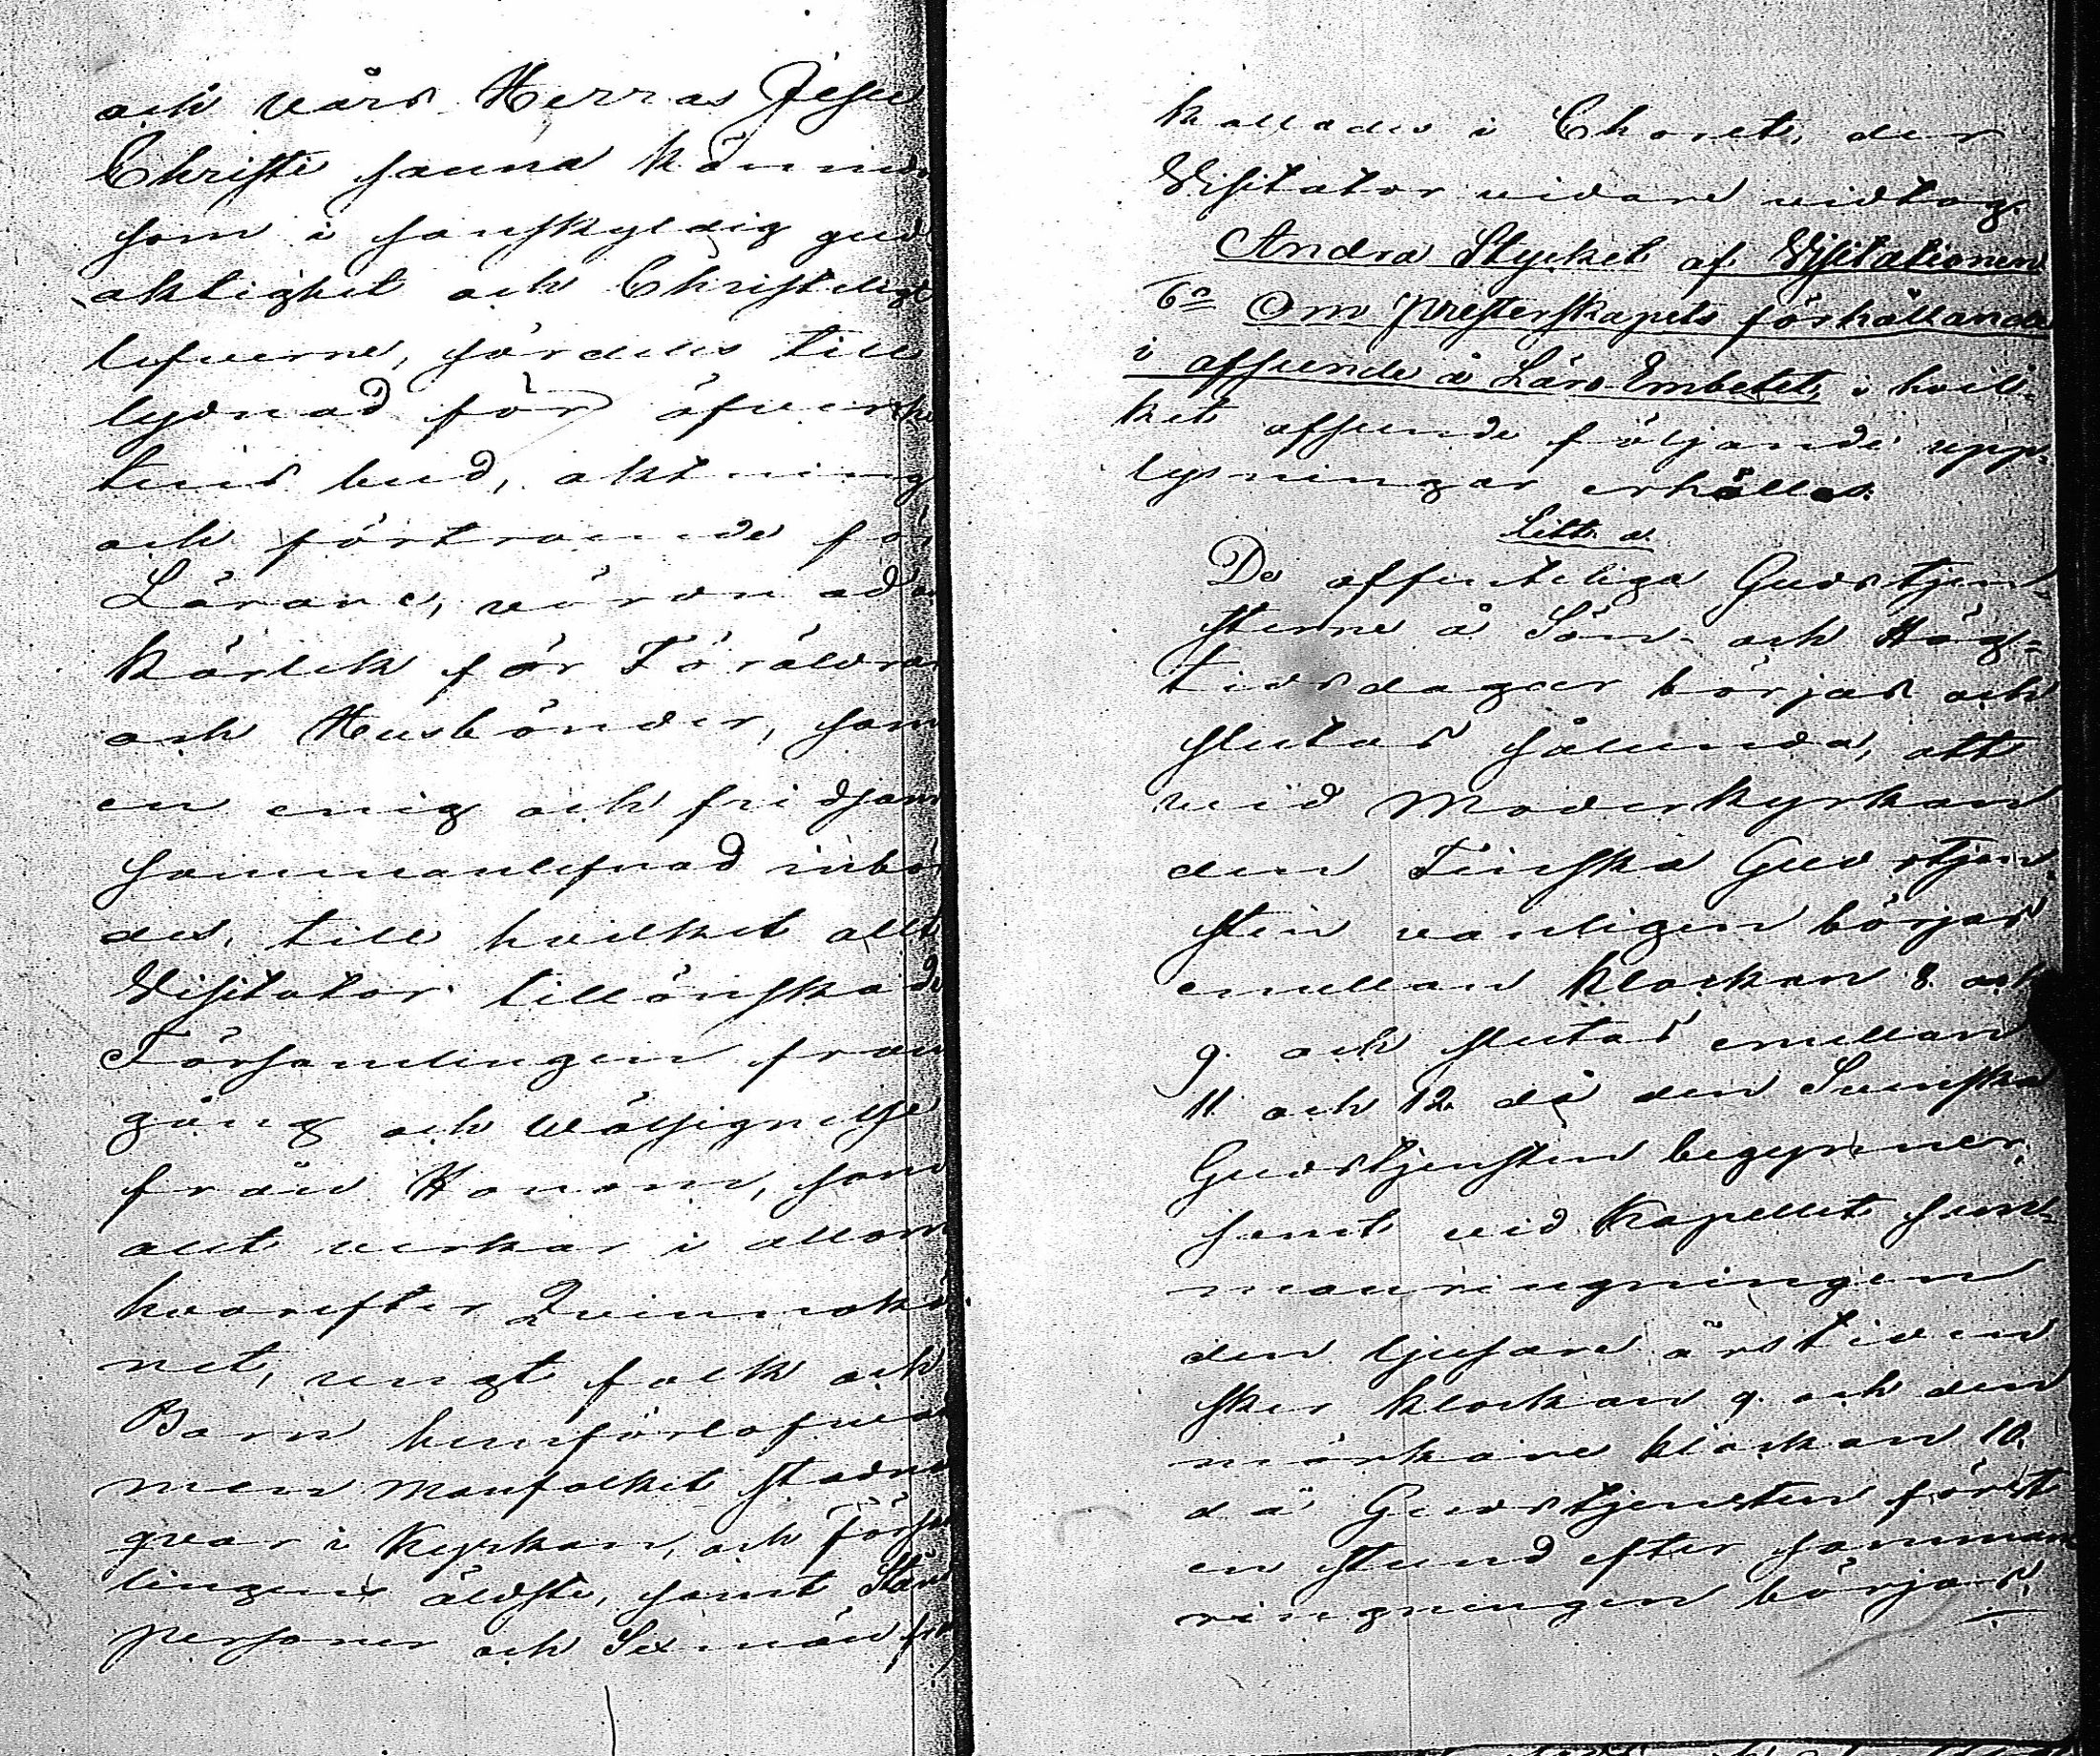 och vårs Herras Jesu
Christi sanna känne
som i sannskyldig gud
aktighet och Christelige
lefverne, särdeles till
lydnad för öfverhe
tens bud, aktning
och förtroende för
Lärare, vördnad o
kärlek för Föräldrar
och Husbönder, som
en enig och fridsam
sammanlefnad inbö
des, till hvilket allt
Visitator tillönskade
Församlingen fram
gång och wälsignelse
från Honom, som
allt verkar i allom
hvarefter Qvinnokö
net, ungt folk och
Barn hemförlofvad
men Manfolket stadna
qvar i Kyrkan, och Försa
lingens äldste, samt Stån
personer och Sexmän fr
kallades i Choret, der
Visitator vidare vidtog.
Andra Stycket af Visitationen
6o Om Presterskapets förhållande
i afseende å Läro Embetet, i hvil-
ket afseende följande upp-
lysningar erhölles.
Litt. a.
De offenteliga Gudstjen-
sterne å Sön- och Hög-
tidsdagar börjas och
slutas sålunda, att
vid Moderkyrkan
den Finska Gudstjen-
sten vanligen börjas
emellan klockan 8. och
9. och slutas emellan
11. och 12. då den Svenska
Gudstjensten begynner,
samt vid Kapellet sam-
manringningen
den ljusare årstiden
sker klockan 9. och den
mörkare klockan 10.
då Gudstjensten först
en stund efter samman
ringningen börjas.